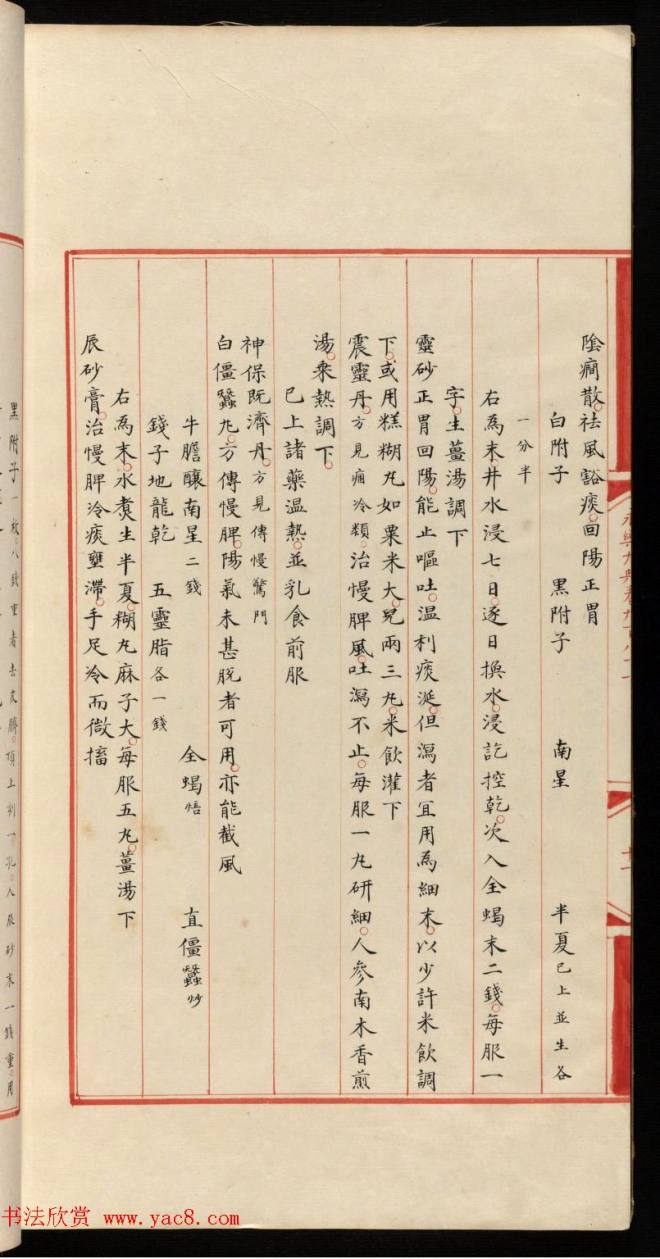 陰癎散祛風豁痰回陽正胃
白附子 黑附子 南星 半夏已上並生各
一分半
右為末井水浸七日逐日換水浸訖控乾次入全蝎末二錢每服一
字生薑湯調下
靈砂正胃回陽能止嘔吐温利痰涎但瀉者宜用為細末以少許米飲調
下或用糕糊丸如粟米大兒兩三丸米飲灌下
震靈丹方見痼冷類治慢脾風吐瀉不止每服一丸研細人參南木香煎
湯乘熱調下
已上諸藥温熱並乳食前服
神保既濟丹方見傳慢驚門
白僵蠶丸方傳慢脾陽氣未甚脱者可用亦能截風
牛膽釀南星二錢 全蝎焙 直僵蠶炒
錢子地龍乾 五靈脂各一錢
右為末水煑生半夏糊丸麻子大每服五丸薑湯下
辰砂膏治慢脾冷痰壅滯手足冷而微搐
黑附子一枚八錢重者去皮臍頂上刋一孔入辰砂末一錢重用
永樂大典卷九百八十一
十一
书法欣赏 www.yac8.com